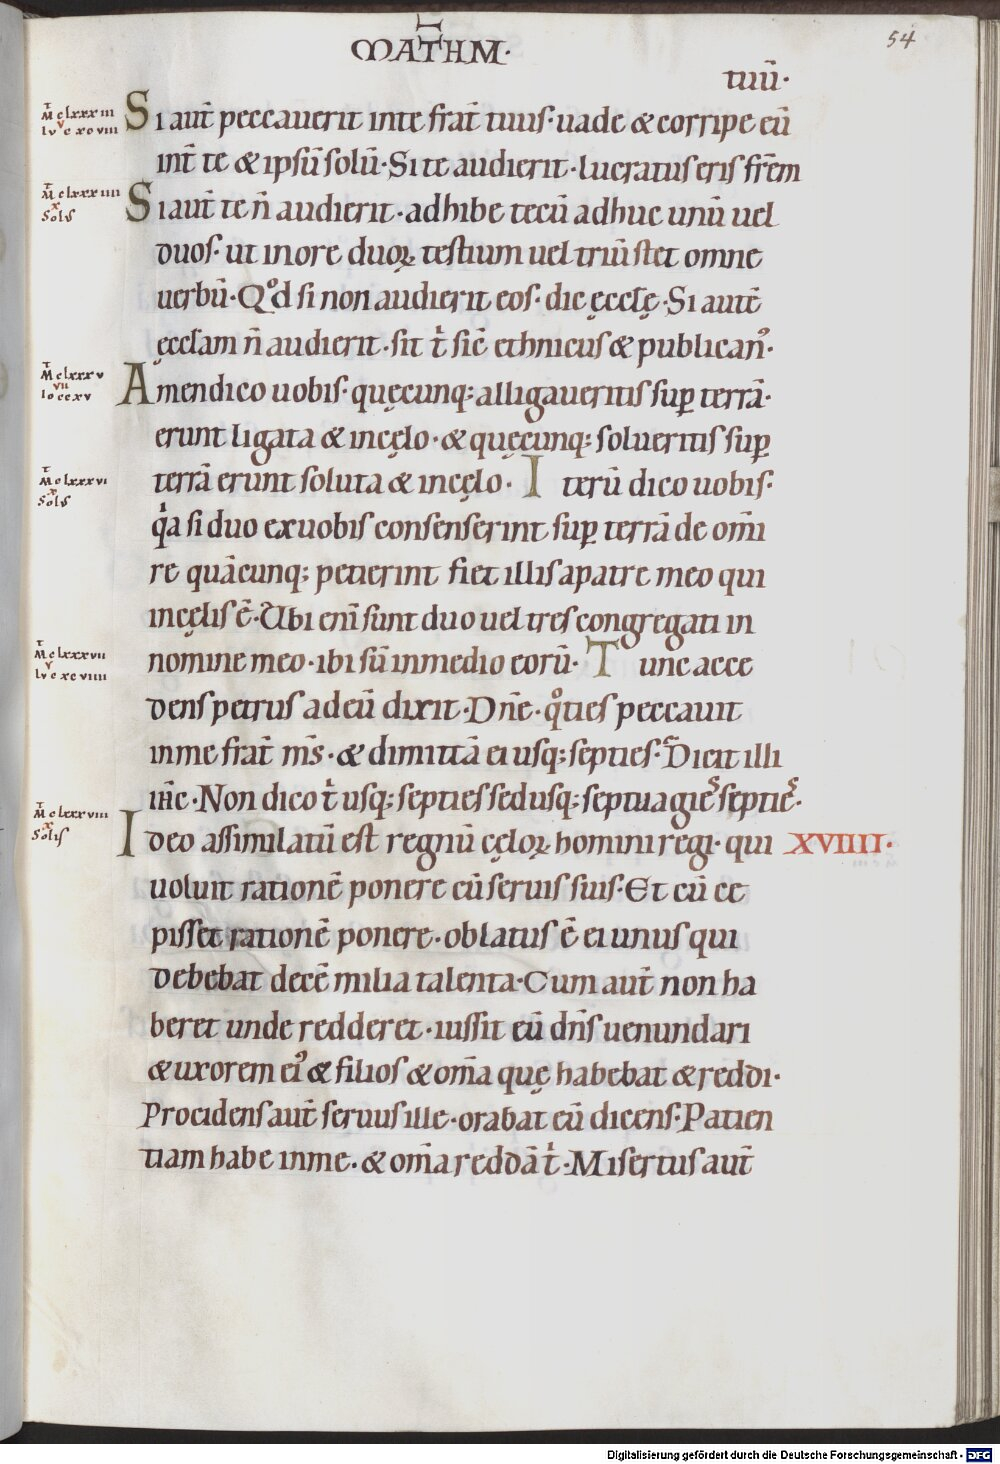 MATHM·
54
tuū·
M̄ clxxxiii
lv c xcviiii
Si aut̄ peccauerit inte frat̄ tuus· uade & corripe eū
int̄ te & ipsū solū· Si te audierit· lucratus eris frēm
M̄ clxxxiiii
x
Solꝰ
Si aut̄ te n̄ audierit· adhibe tecū adhuc unū uel
duos· ut inore duoꝝ testium uel triū stet omne
uerbū· Qd̊ si non audierit eos· dic ęcclę· Si autē
ęccłam n̄ audierit· sit t̓ sic̄ ethnicus & publicanꝰ·
M̄ clxxxv
vii
Io ccxv
Amendico uobis· quęcunq; alligaueritis suꝑ terrā·
erunt ligata & incęlo· & quęcunq; solueritis suꝑ
M̄ clxxxvi
x
Solꝰ
terrā erunt soluta & incęlo· Iterū dico uobis·
qͥa si duo exuobis consenserint suꝑ terrā de om̄i
re quācunq; petierint fiet illis apatre meo qui
incęlis ē· Ubi enī sunt duo uel tres congregati in
M̄ clxxxvii
v
lv c xcviiii
nomine meo· ibi sū inmedio eorū· Tunc acce
dens petrus adeū dixit· Dn̄e· qͦties peccauit
inme frat̄ m̄s· & dimittā ei usq; septies· Dicit illi
ih̄c· Non dico t̓ usq; septies sedusq; septuagieˢ septieˢ·
M̄ clxxxviii
x
Solꝰ
Ideo assimilatū est regnū cęloꝝ homini regi· qui XVIIII·
uoluit rationē ponere cū seruis suis· Et cū ce
pisset rationē ponere· oblatus ē ei unus qui
debebat decē milia talenta· Cum aut̄ non ha
beret unde redderet· iussit eū dn̄s uenundari
& uxorem eiꝰ & filios & om̄a quę habebat & reddi·
Procidens aut̄ seruus ille· orabat eū dicens· Patien
tiam habe inme· & om̄a reddā t̓· Misertus aut̄
Digitalisierung gefördert durch die Deutsche Forschungsgemeinschaft - DFG